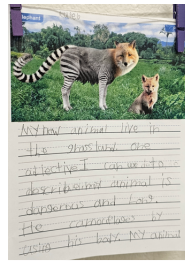 elephant
My new animal live in
the grassland one
adjective I can use to
describe my animal is
dangerous and long.
He camouflages by
using his body. My animal